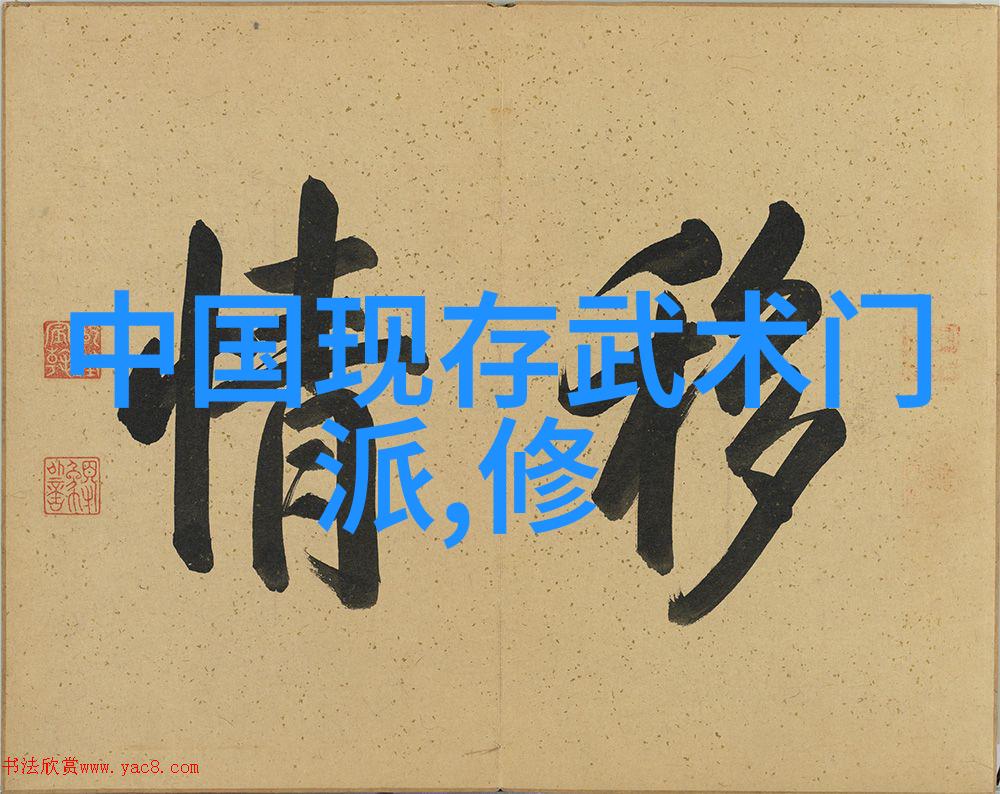 移情
中国现存武术门
派,修
书法欣赏www.yac8.com